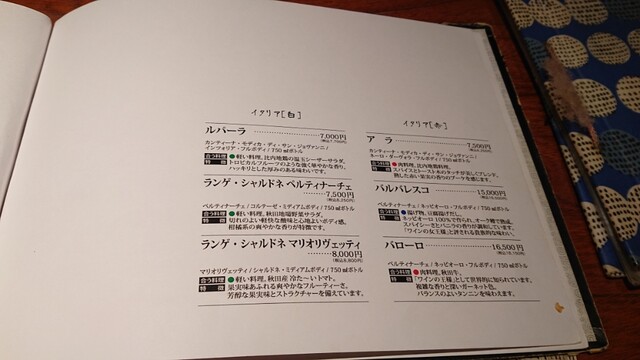 イタリア[白]
ルパーラ
7,000円
カンティーナ・モディカ・ディ・サン・ジョヴァンニ/
インツォリア・フルボディ/750mlボトル
合う料理 ●軽い料理、比内地鶏の温玉シーザーサラダ。
特徴 トロピカルフルーツのような強く華やかな香り。
ハッキリとした厚みのある味わいです。
ランゲ・シャルドネ ベルティナーチェ
7,500円
(税込8,250円)
ベルティナーチェ/コルテーゼ・ミディアムボディ/750mlボトル
合う料理 ●軽い料理、秋田地場野菜サラダ。
特徴 切れのよい軽快な酸味と心地よいボディ感。
柑橘系の爽やかな香りが特徴です。
ランゲ・シャルドネ マリオリヴェッティ
8,000円
(税込8,800円)
マリオリヴェッティ/シャルドネ・ミディアムボディ/750mlボトル
合う料理 ●軽い料理、秋田産 冷た〜いトマト。
特徴 果実味あふれる爽やかなフルーティーさ。
芳醇な果実味とストラクチャーを備えています。
イタリア[赤]
アラ
7,500円
カンティーナ・モディカ・ディ・サン・ジョヴァンニ/
ネーロ・ダーヴォラ・フルボディ/750mlボトル
合う料理 ●肉料理、比内地鶏。
特徴 スパイスとトースト木のタッチが混じりブレンド。
熟した赤い果実の香りのアーラを感じます。
バルバレスコ
15,000円
ベルティナーチェ/ネッビオーロ・フルボディ/750mlボトル
合う料理 ●揚げ物、豆腐揚げだし。
特徴 ネッビオーロ 100%で作られ、オーク樽で熟成。
スパイシーとバニラの香りが調和しています。
「ワインの女王様」と評される貴重的な味わい。
バローロ
16,500円
(税込18,150円)
ベルティナーチェ/ネッビオーロ・フルボディ/750mlボトル
合う料理 ●肉料理、秋田牛。
特徴 「ワインの王様」として世界的に知られています。
複雑な香りと深いガーネット色。
バランスのよいタンニンを味わえます。